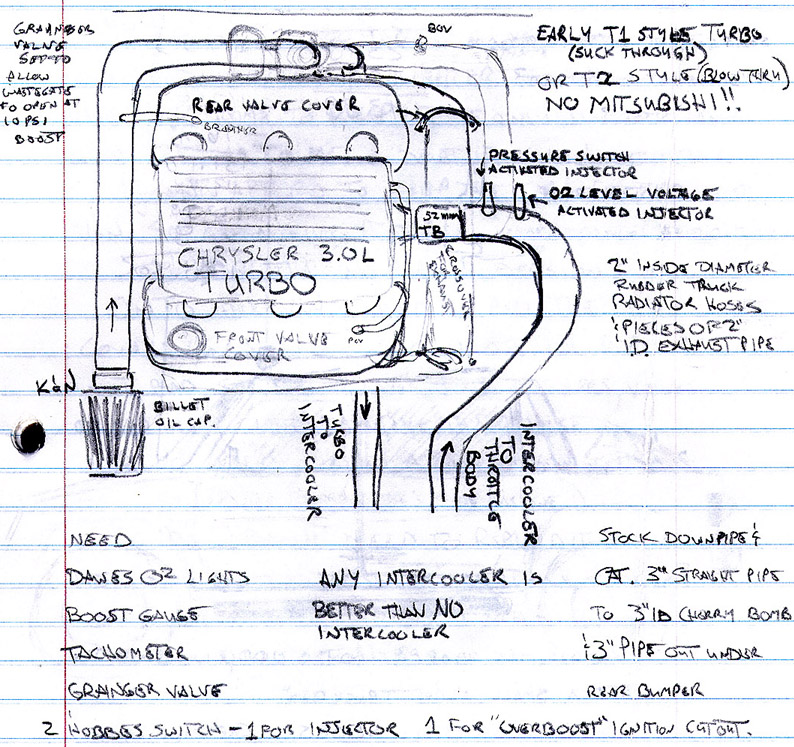 GRAINGER
VALVE
SET TO
ALLOW
WASTEGATE
TO OPEN AT
10 PSI
BOOST
BOV
EARLY T1 STYLE TURBO
(SUCK THROUGH)
OR T2 STYLE (BLOW THRU)
NO MITSUBISHI!!
REAR VALVE COVER
BREATHER
PRESSURE SWITCH
ACTIVATED INJECTOR
O2 LEVEL VOLTAGE
ACTIVATED INJECTOR
52 mm
TB
CHRYSLER 3.0L
TURBO
CROSSOVER
FOR
EXHAUST
2" INSIDE DIAMETER
RUBBER TRUCK
RADIATOR HOSES
& PIECES OF 2"
I.D. EXHAUST PIPE
FRONT VALVE
COVER
PCV
K&N
BILLET
OIL CAP.
TURBO
TO
INTERCOOLER
INTERCOOLER
TO
THROTTLE
BODY
NEED
DAWES O2 LIGHTS
BOOST GAUGE
TACHOMETER
GRAINGER VALVE
ANY INTERCOOLER IS
BETTER THAN NO
INTERCOOLER
STOCK DOWNPIPE &
CAT. 3" STRAIGHT PIPE
TO 3" ID CHERRY BOMB
& 3" PIPE OUT UNDER
REAR BUMPER
2 HOBBES SWITCH - 1 FOR INJECTOR 1 FOR "OVERBOOST" IGNITION CUTOUT.